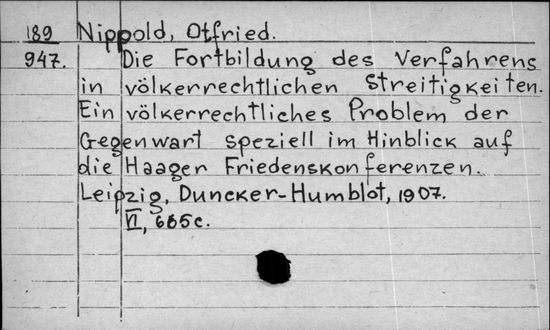 189 Nippold, Otfried.
947. Die Fortbildung des Verfahrens
in völkerrechtlichen Streitigkeiten.
Ein völkerrechtliches Problem der
Gegenwart speziell im Hinblick auf
die Haager Friedenskonferenzen.
Leipzig, Duncker-Humblot, 1907.
VI, 665c.